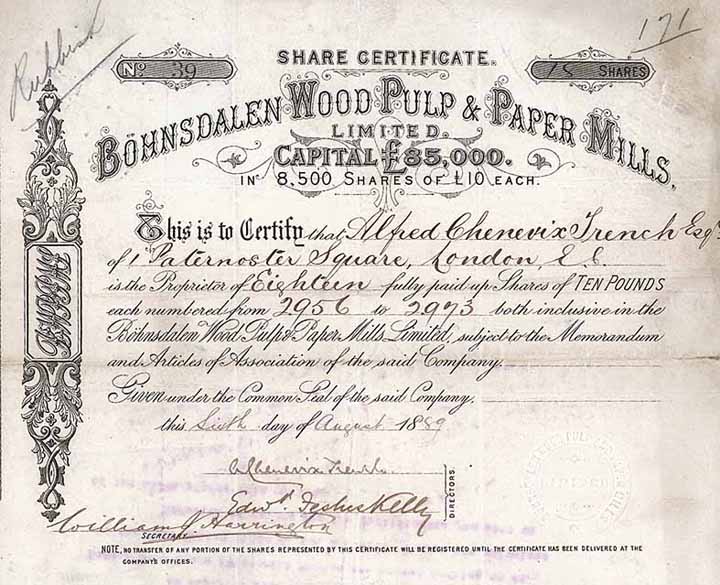 Rubbish
171
SHARE CERTIFICATE.
No 39
18 SHARES
BÖHNSDALEN WOOD PULP & PAPER MILLS,
LIMITED.
CAPITAL £85,000.
IN 8,500 SHARES OF £10 EACH.
This is to Certify that Alfred Chenevix Trench Esqr
of 1 Paternoster Square, London, E.C.
is the Proprietor of Eighteen fully paid up Shares of TEN POUNDS
each numbered from 2956 to 2973 both inclusive in the
Böhnsdalen Wood Pulp & Paper Mills, Limited, subject to the Memorandum
and Articles of Association of the said Company.
Given under the Common Seal of the said Company,
this Sixth day of August 1889
A Chenevix Trench
Edwd Kelly
DIRECTORS.
William J. Harrington
SECRETARY.
NOTE, NO TRANSFER OF ANY PORTION OF THE SHARES REPRESENTED BY THIS CERTIFICATE WILL BE REGISTERED UNTIL THE CERTIFICATE HAS BEEN DELIVERED AT THE
COMPANY'S OFFICES.